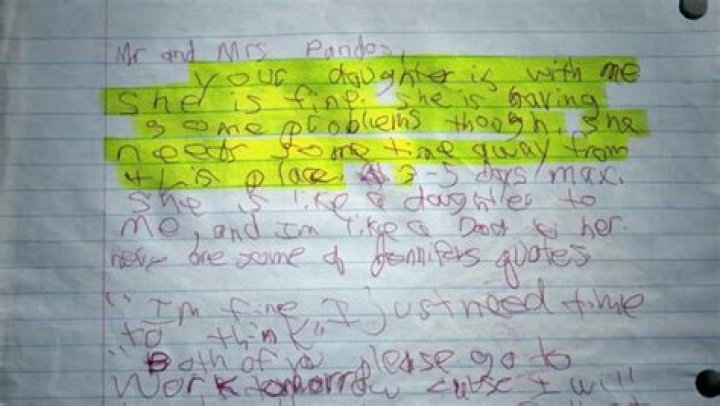 Mr and Mrs Pandos,
your daughter is with me
she is fine. she is having
some problems though. she
needs some time away from
this place. 3-5 days max.
she is like a daughter to
me, and Im like a Dad to her.
here are some of Jennifers quotes
"Im fine I just need time
to think"
"Both of you please go to
work tomorrow cause I will